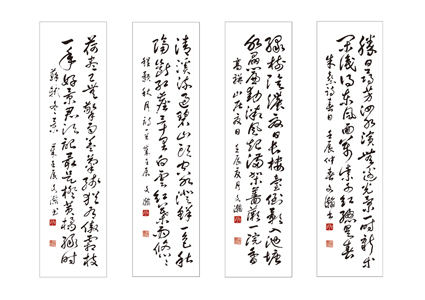 勝日尋芳泗水濱無邊光景一時新等
閒識得東風面萬紫千紅總是春
朱熹詩春日 壬辰仲春文瀚書
綠樹陰濃夏日長樓臺倒影入池塘
水晶簾動微風起滿架薔薇一院香
高駢山居夏日 壬辰夏月文瀚
清溪流過碧山頭空水澄鮮一色秋
隔斷紅塵三十里白雲紅葉兩悠悠
程顥秋月詩一首壬辰文瀚
荷盡已無擎雨蓋菊殘猶有傲霜枝
一年好景君須記最是橙黃橘綠時
蘇軾冬景 壬辰文瀚書